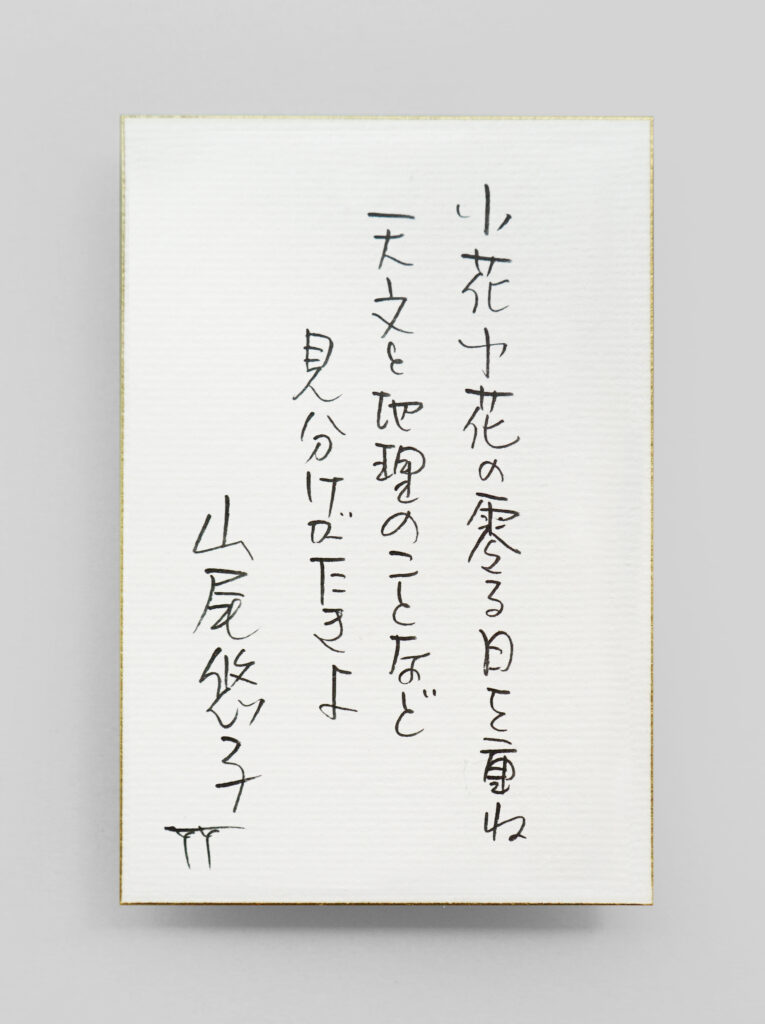 小花中花の零る日を重ね
天文と地理のことなど
見分けがたきよ
山尾悠子